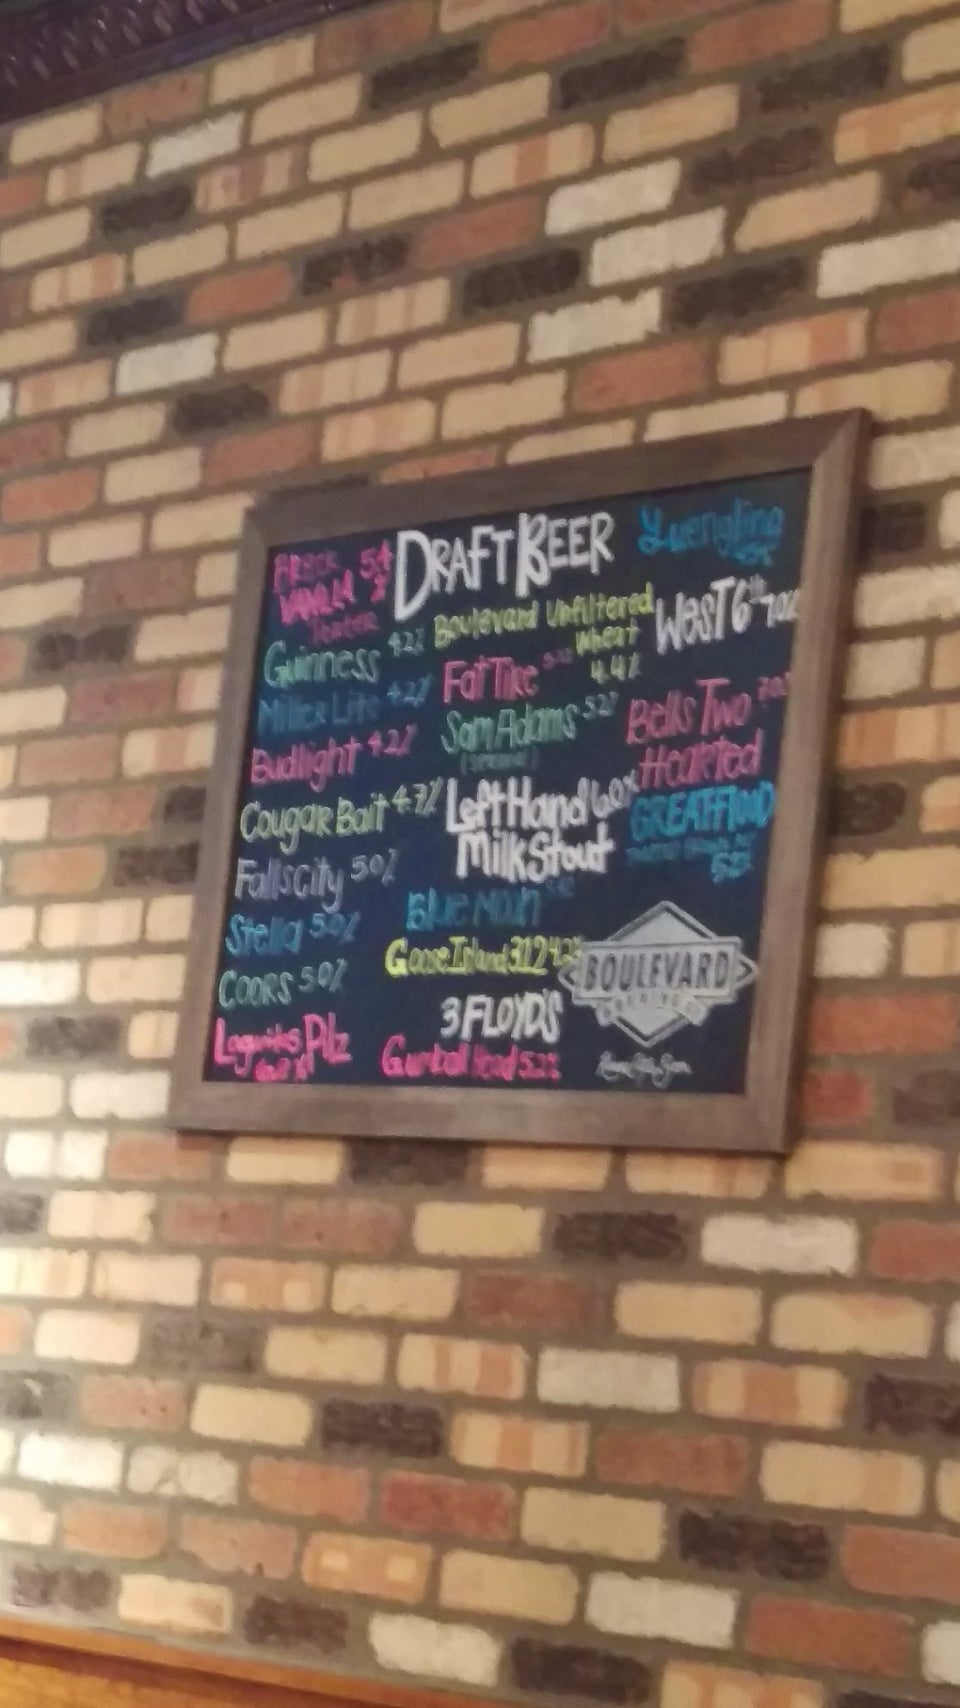 DRAFT BEER
VANILLA
Porter
5.4
%
Guinness 4.2%
Miller Lite 4.2%
Budlight 4.2%
Cougar Bait 4.7%
Falls City 5.0%
Stella 5.0%
Coors 5.0%
Lagunitas Pilz
Boulevard Unfiltered
Wheat
4.4%
Fat Tire
Sam Adams 5.2%
Left Hand 6.0%
Milk Stout
Blue Moon
Goose Island 312 4.2%
3 FLOYD'S
Gumball Head 5.2%
Yuengling
WEST 6th 7.0%
Bells Two 7.0%
Hearted
GREAT FLOOD
BOULEVARD
BREWING CO.